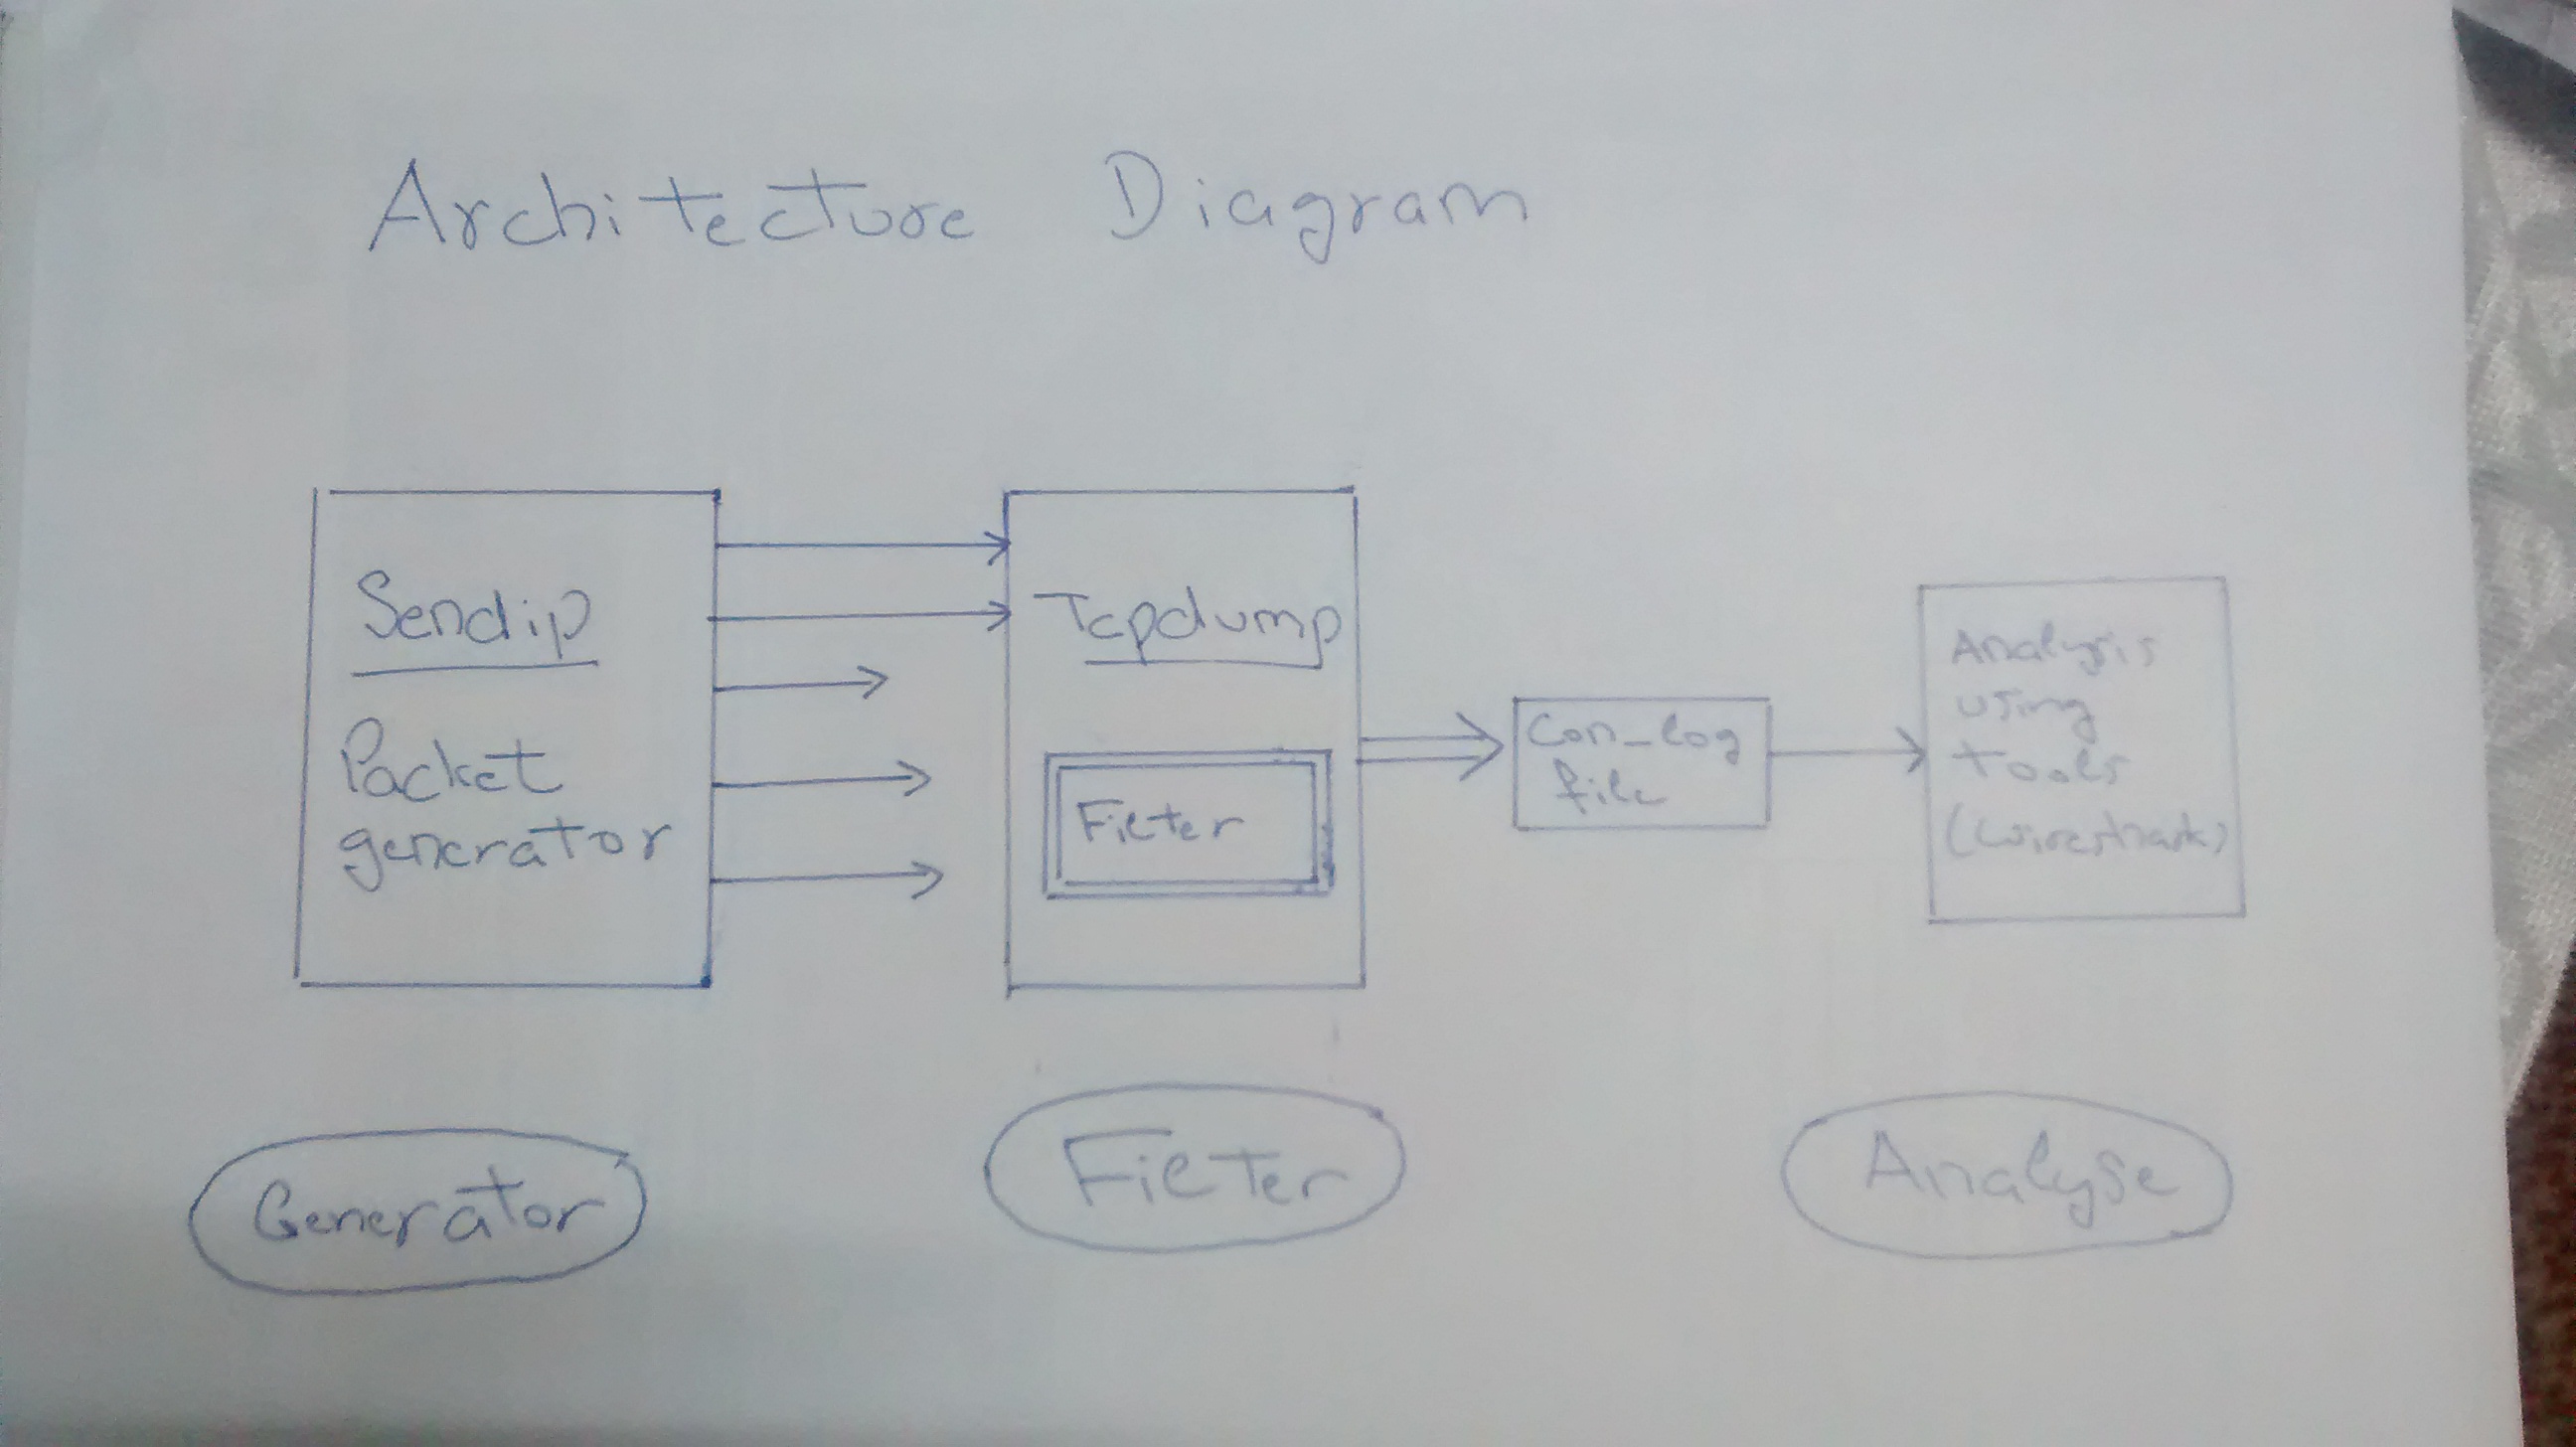 Architecture Diagram
Sendip
Packet
generator
Tcpdump
Filter
Con_log
file
Analysis
using
tools
(wireshark)
Generator
Filter
Analyse